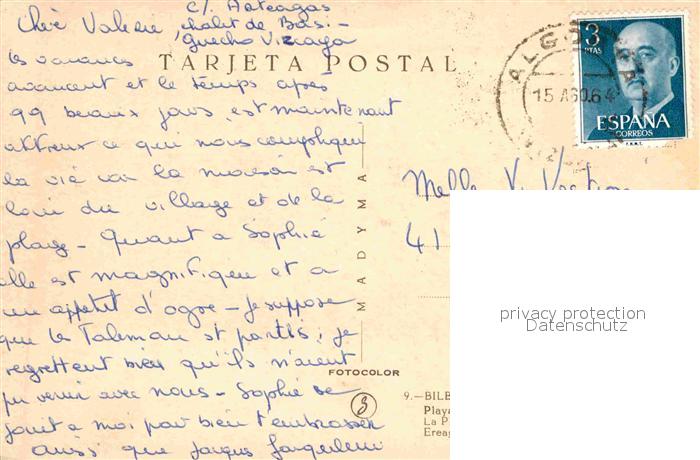 c/. Arteagas
Chère Valerie, chalet de Bas. -
Guecho Vizcaya
les vacances
TARJETA POSTAL
avancent et le temps après
99 beaux jours, est maintenant
affreux ce qui nous complique
la vie car la maison est
loin du village et de la
plage - Quant a Sophie
elle est magnifique et a
un appetit d'ogre - je suppose
que les st partis, je
regrettent bien qu'ils n'aient
pu venir avec nous - Sophie se
joint a moi pour bien t'embrasser
ainsi que Jacques
MADYMA
FOTOCOLOR
3
9.—BILB
Playa
La P
Ereag
Melle V.
41
ALGORTA
15 AGO.64
3
PTAS
ESPAÑA
CORREOS
F.N.M.T.
privacy protection
Datenschutz